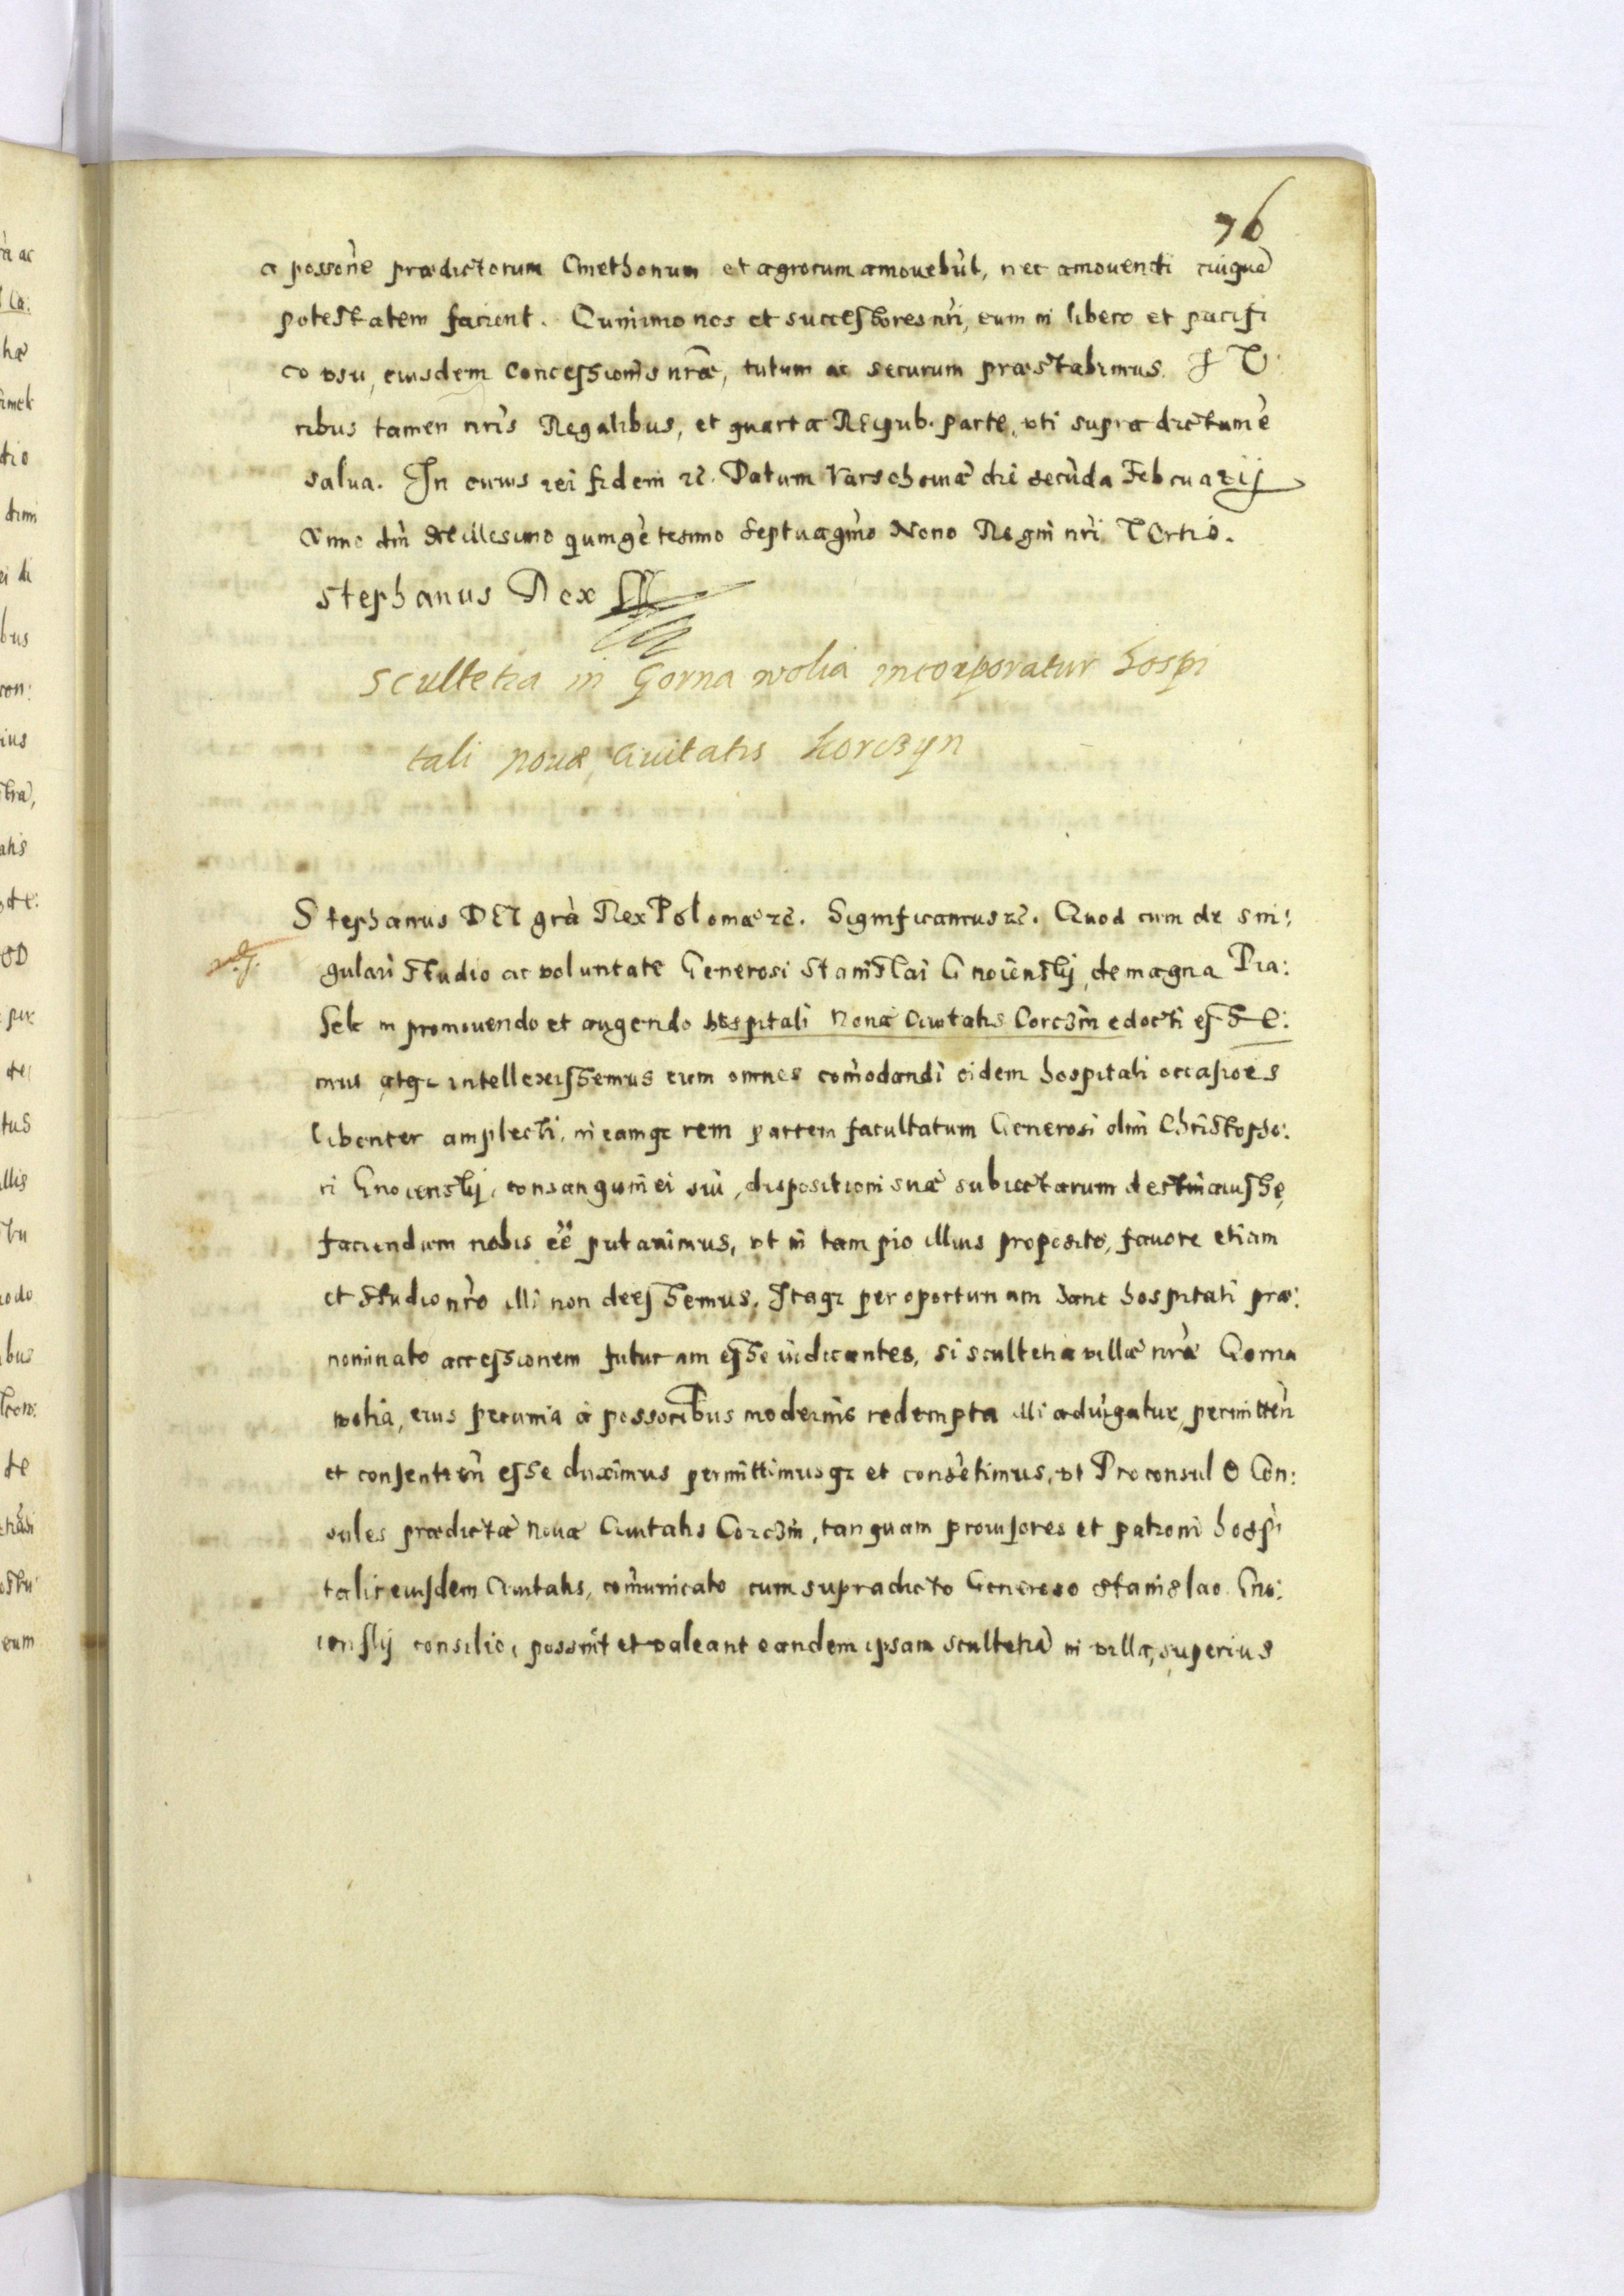 76
a possoñe prædictorum Cmethonum et agrorum amouebũt, nec amouendi cuiquã
potestatem facient. Quinimo nos et successores nr̃i, eum in libero et pacifi
co vsu, eiusdem Concessionis nr̃æ, tutum ac securum præstabimus. I V
ribus tamen nr̃is Regalibus, et quarta Reipub. parte, vti supra dictum ẽ
salua. In cuius rei fidem &c. Datum Varschouiæ die secũda Februarij
Anno dni Millesimo quingẽtesimo Septuagmo Nono Regni nr̃i Tertio.
Stephanus Rex
Scultetia in Gorna wolia incorporatur hospi
tali nouæ Ciuitatis Korczyn
Stephanus DEI grã Rex Poloniæ &c. Significamus &c. Quod cum de sin:
gulari studio ac voluntate Generosi Stanislai Gnoienslij, de magna Pia:
sek in promouendo et augendo hospitali Nouæ Ciuitatis Corczin edocti esse:
mus atqʒ intellexissemus eum omnes com̃odandi eidem hospitali occasiones
libenter amplecti, in eamqʒ rem partem facultatum Generosi olim Christopho:
ri Gnoienslij, consanguinei sui, dispositioni suæ subiectarum destinauisse,
faciendum nobis ẽe putauimus, vt in tam pio illius proposito, fauore etiam
et studio nr̃o illi non deessemus. Itaqʒ peroportunam hanc hospitali præ:
nominato accessionem futuram esse iudicantes, si scultetia villæ nr̃æ Gorna
wolia, eius pecunia à possoribus modernis redempta illi adiũgatur, permitteñ
et consentieñ esse duximus permittimusqʒ et consẽtimus, vt Proconsul & Con:
sules prædictæ Nouæ Ciuitatis Corczin, tanquam prouisores et patroni hospi
talis eiusdem Ciuitatis, com̃unicato cum supradicto Generoso Stanislao Gno:
ienslij consilio, possint et valeant eandem ipsam scultetiã in villa, superius